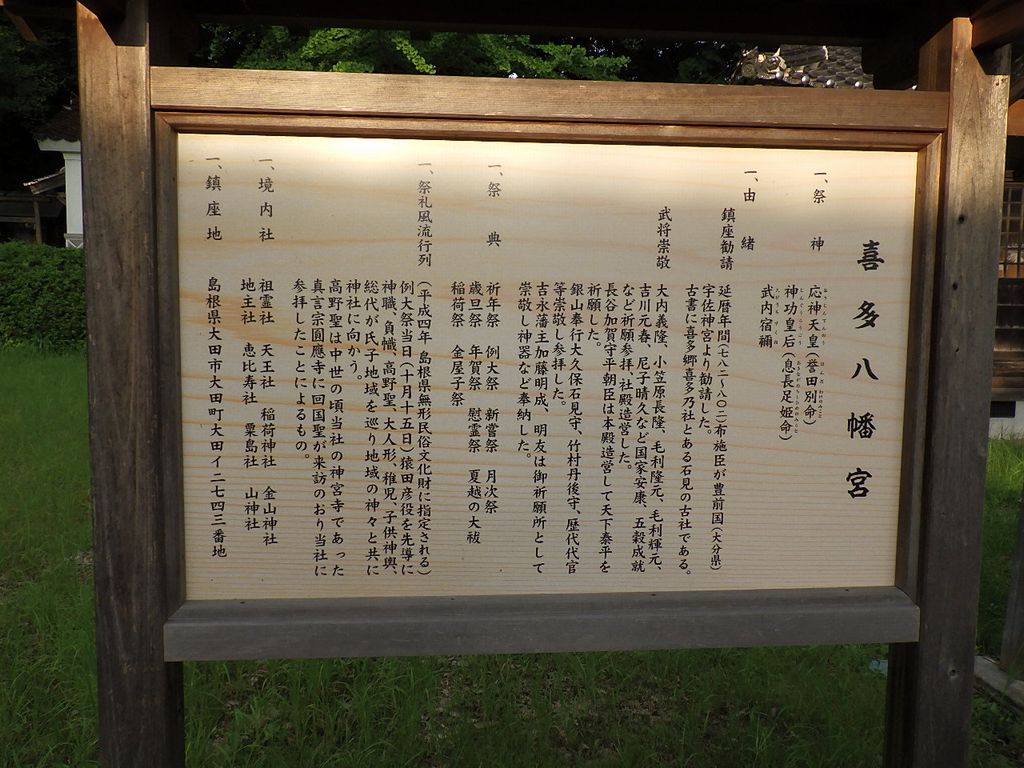 喜多八幡宮
一、祭神
応神天皇(誉田別命)
神功皇后(息長足姫命)
武内宿禰
一、由緒
鎮座勧請
延暦年間(七八二〜八〇二)布施臣が豊前国(大分県)
宇佐神宮より勧請した。
古書に喜多郷喜多乃社とある石見の古社である。
武将崇敬
大内義隆、小笠原長隆、毛利隆元、毛利輝元、
吉川元春、尼子晴久など国家安康、五穀成就
など祈願参拝、社殿造営した。
長谷加賀守平朝臣は本殿造営して天下泰平を
祈願した。
銀山奉行大久保石見守、竹村丹後守、歴代代官
等崇敬し参拝した。
吉永藩主加藤明成、明友は御祈願所として
崇敬し神器など奉納した。
一、祭典
祈年祭 例大祭 新嘗祭 月次祭
歳旦祭 年賀祭 慰霊祭 夏越の大祓
稲荷祭 金屋子祭
一、祭礼風流行列
(平成四年 島根県無形民俗文化財に指定される)
例大祭当日(十月十五日)猿田彦役を先導に
神職、負幟、高野聖、大人形、稚児、子供神輿、
総代が氏子地域を巡り地域の神々と共に
神社に向かう。
高野聖は中世の頃当社の神宮寺であった
真言宗圓應寺に回国聖が来訪のおり当社に
参拝したことによるもの。
一、境内社
祖霊社 天王社 稲荷神社 金山神社
地主社 恵比寿社 粟島社 山神社
一、鎮座地
島根県大田市大田町大田イ二七四三番地